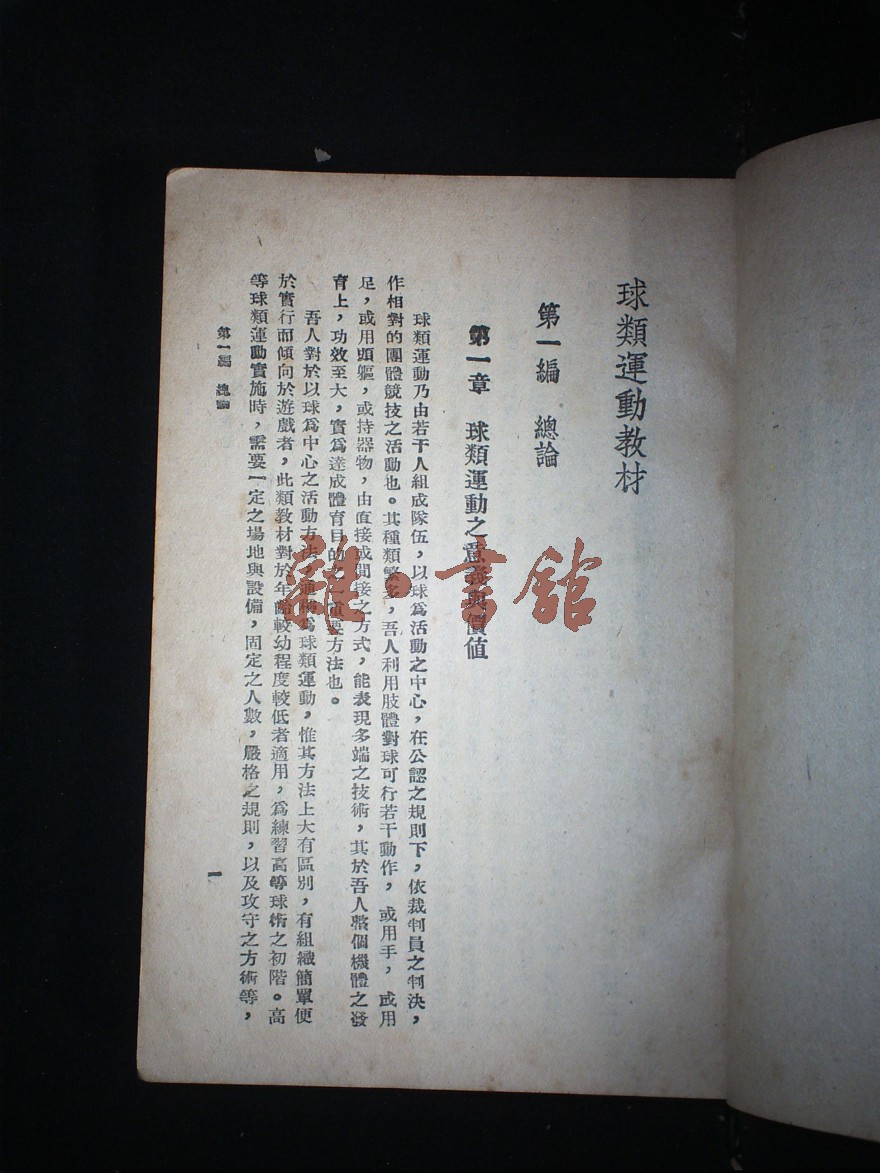 球類運動教材
第一編　總論
第一章　球類運動之意義與價値
球類運動乃由若干人組成隊伍，以球爲活動之中心，在公認之規則下，依裁判員之判決，
作相對的團體競技之活動也。其種類繁多，吾人利用肢體對球可行若干動作，或用手，或用
足，或用頭軀，或持器物，由直接或間接之方式，能表現多端之技術，其於吾人整個機體之發
育上，功效至大，實爲達成體育目的之一重要方法也。
吾人對於以球爲中心之活動方法，通稱爲球類運動，惟其方法上大有區別，有組織簡單便
於實行而傾向於遊戲者，此類教材對於年齡較幼程度較低者適用，爲練習高等球術之初階。高
等球類運動實施時，需要一定之場地與設備，固定之人數，嚴格之規則，以及攻守之方術等，
第一編　總論
一
雜·書館